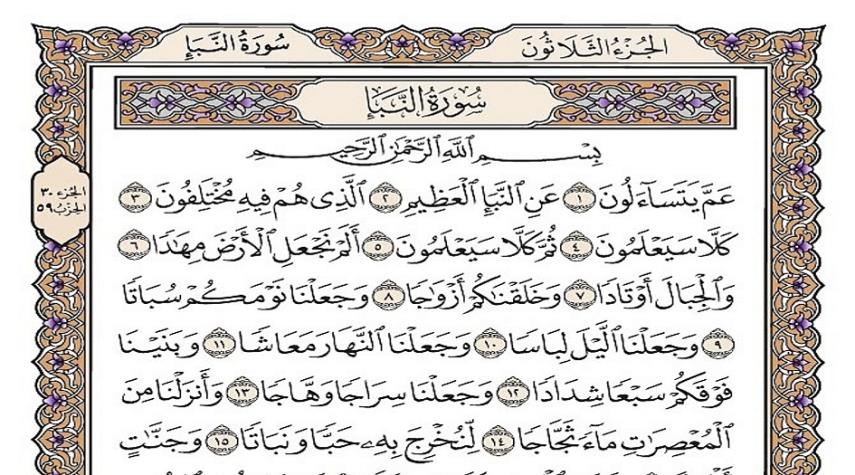 الجُزْءُ الثَّلَاثُونَ
سُورَةُ النَّبَإِ
سُورَةُ النَّبَإِ
بِسْمِ ٱللَّهِ ٱلرَّحْمَٰنِ ٱلرَّحِيمِ
عَمَّ يَتَسَآءَلُونَ ١ عَنِ ٱلنَّبَإِ ٱلْعَظِيمِ ٢ ٱلَّذِى هُمْ فِيهِ مُخْتَلِفُونَ ٣
كَلَّا سَيَعْلَمُونَ ٤ ثُمَّ كَلَّا سَيَعْلَمُونَ ٥ أَلَمْ نَجْعَلِ ٱلْأَرْضَ مِهَٰدًا ٦
وَٱلْجِبَالَ أَوْتَادًا ٧ وَخَلَقْنَٰكُمْ أَزْوَٰجًا ٨ وَجَعَلْنَا نَوْمَكُمْ سُبَاتًا
٩ وَجَعَلْنَا ٱلَّيْلَ لِبَاسًا ١٠ وَجَعَلْنَا ٱلنَّهَارَ مَعَاشًا ١١ وَبَنَيْنَا
فَوْقَكُمْ سَبْعًا شِدَادًا ١٢ وَجَعَلْنَا سِرَاجًا وَهَّاجًا ١٣ وَأَنزَلْنَا مِنَ
ٱلْمُعْصِرَٰتِ مَآءً ثَجَّاجًا ١٤ لِّنُخْرِجَ بِهِۦ حَبًّا وَنَبَاتًا ١٥ وَجَنَّٰتٍ
الجزء ٣٠
الحزب ٥٩